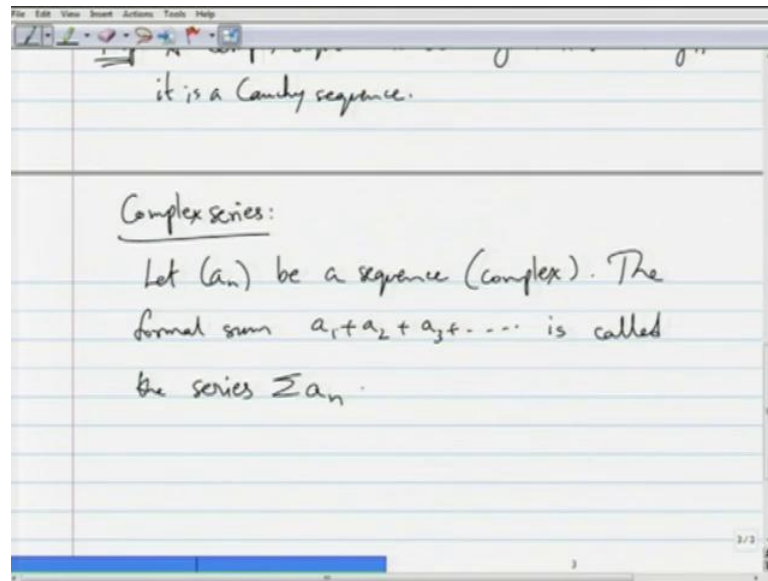 File Edit View Insert Actions Tools Help
it is a Cauchy sequence.
Complex series:
Let (aₙ) be a sequence (complex). The
formal sum a₁+a₂+a₃+.... is called
the series Σaₙ.
2/2
3